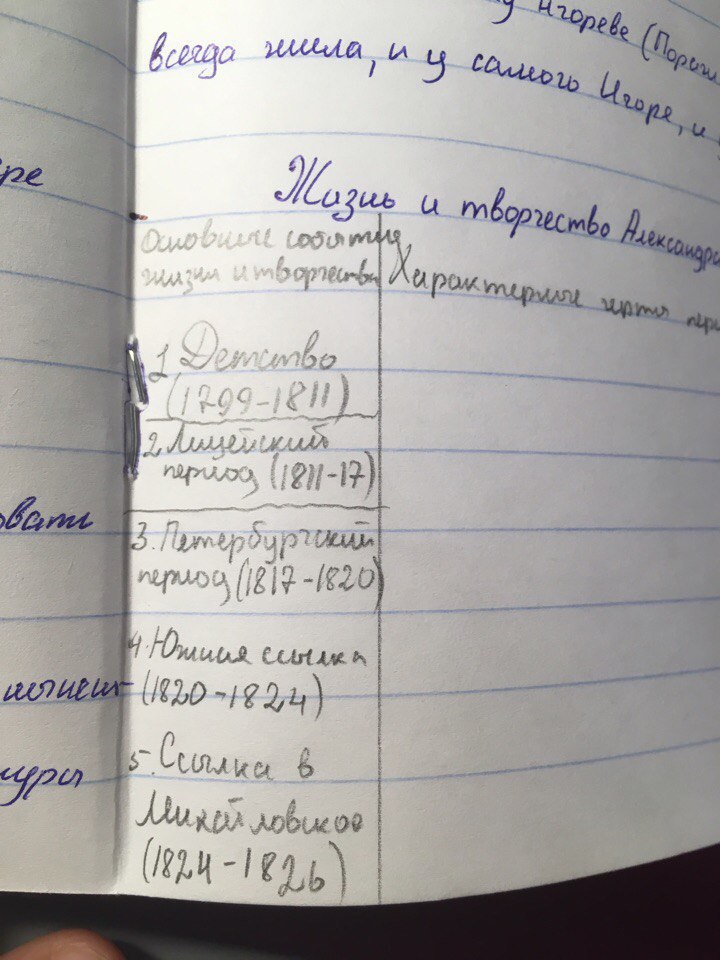 Игореве
всегда жила, и у самого Игоре, и
ре
Жизнь и творчество Александра
Основные события
жизни и творчества
Характерные черты пери
1. Детство
(1799-1811)
2. Лицейский
период (1811-17)
овать
3. Петербургский
период (1817-1820)
4. Южная ссылка
(1820-1824)
5. Ссылка в
Михайловское
(1824-1826)